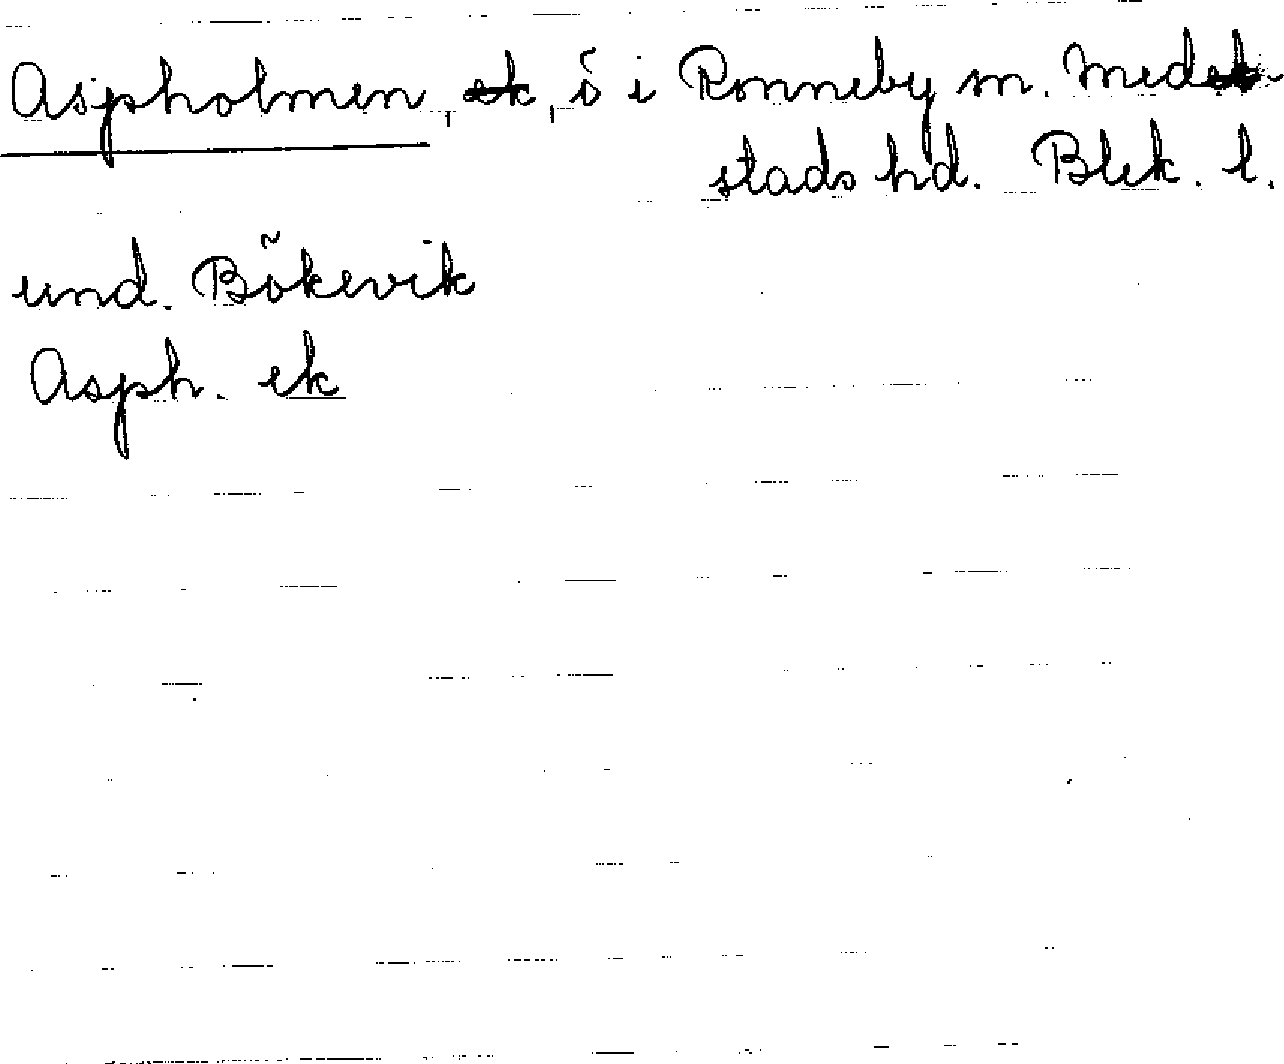 Aspholmen, ek, ö i Ronneby m. Medel
stads hd. Blek. l.
und. Bökevik
Asph. ek